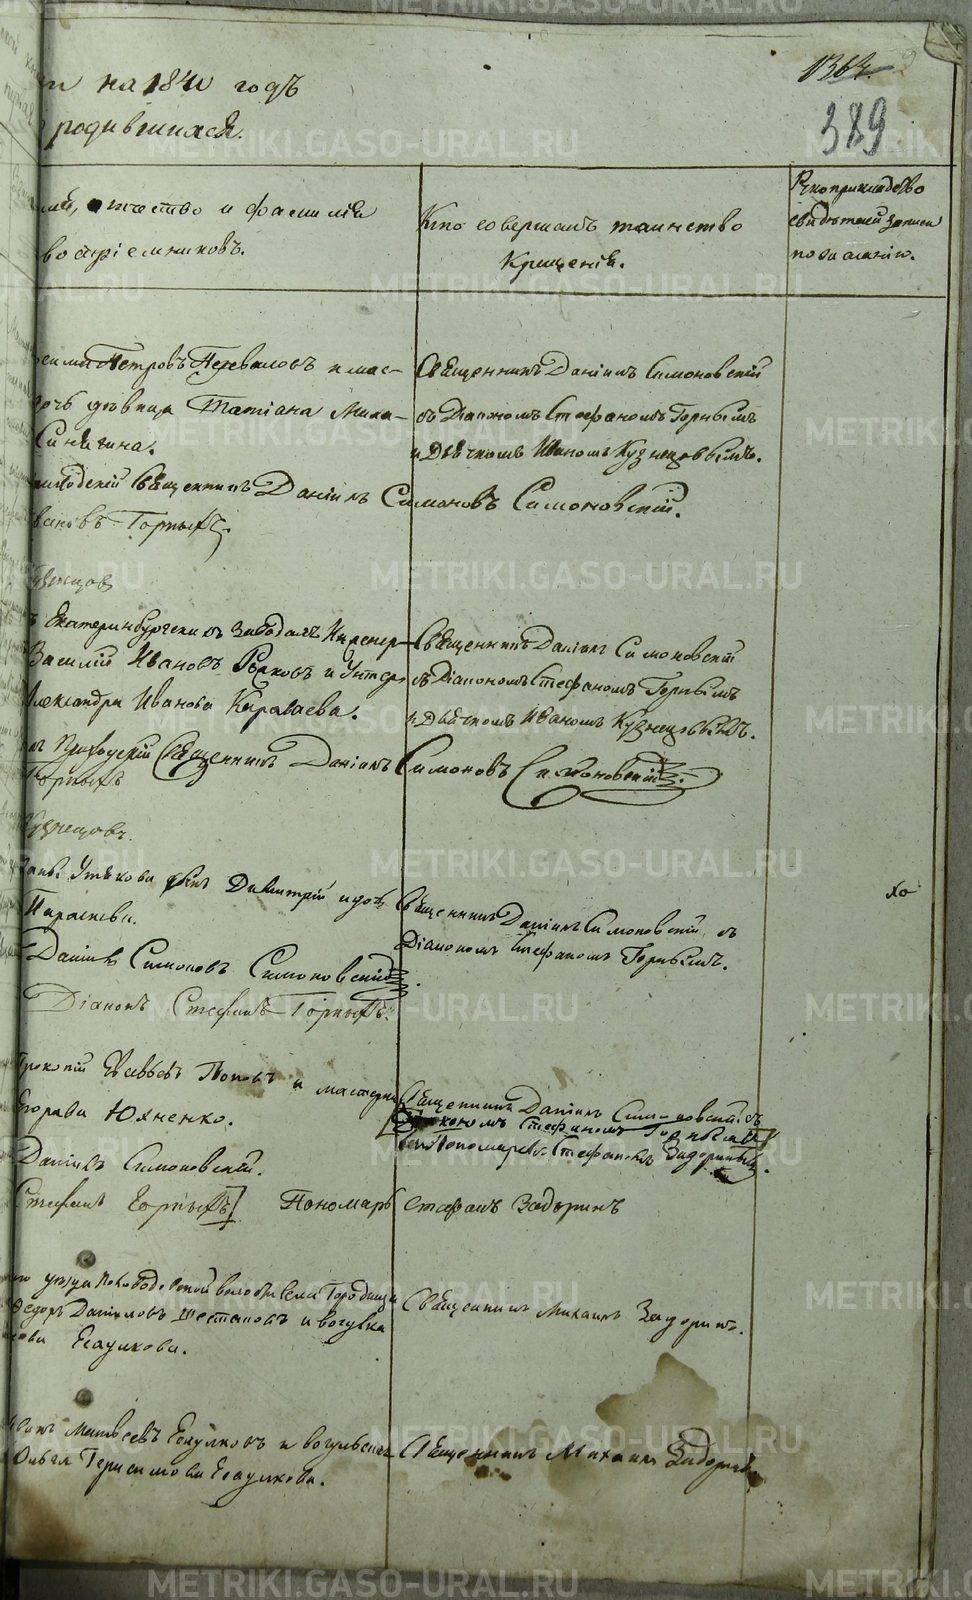 на 1840 годъ
родившихся.
1364.
389
отчество и фамилія
воспріемниковъ.
Кто совершалъ таинство
Крещенія.
Рукоприкладство
свидѣтелей записи
по желанію.
Петровъ Переваловъ и мас-
дочь дѣвица Татіана
Синягина.
Священникъ Даніилъ Симоновскій
съ Діакономъ Стефаномъ Горныхъ
и Дьячкомъ Иваномъ Кузнецовымъ.
Священникъ Даніилъ Симоновъ Симоновскій.
вановъ Горныхъ.
Кузнецовъ
Екатеринбургскихъ заводовъ
Василій Ивановъ Рожковъ и Унтеръ
Александра Иванова Караваева.
Священникъ Даніилъ Симоновскій
съ Діакономъ Стефаномъ Горныхъ
и Дьячкомъ Иваномъ Кузнецовымъ.
Приходскій Священникъ Даніилъ Симоновъ Симоновскій.
Горныхъ
Кузнецовъ.
Утѣкова сынъ Димитрій и дочь
Параскева.
Священникъ Даніилъ Симоновскій съ
Діакономъ Стефаномъ Горныхъ.
Даніилъ Симоновъ Симоновскій.
Діаконъ Стефанъ Горныхъ.
Прокопій Евсѣевъ Поповъ и мастер
Егорова Юхненко.
Священникъ Даніилъ Симоновскій съ
Діакономъ Стефаномъ Горныхъ
и Пономаремъ Стефаномъ Задоринымъ.
Даніилъ Симоновскій.
Стефанъ Горныхъ Пономарь Стефанъ Задоринъ
уѣзда волости села Городища
Ѳедоръ Даніиловъ Шестаковъ и вогулка
Есаулкова.
Священникъ Михаилъ Задоринъ.
Иванъ Матвеевъ Есаулковъ и вогульская
Ольга Герасимова Есаулкова.
Священникъ Михаилъ Задоринъ
METRIKI.GASO-URAL.RU